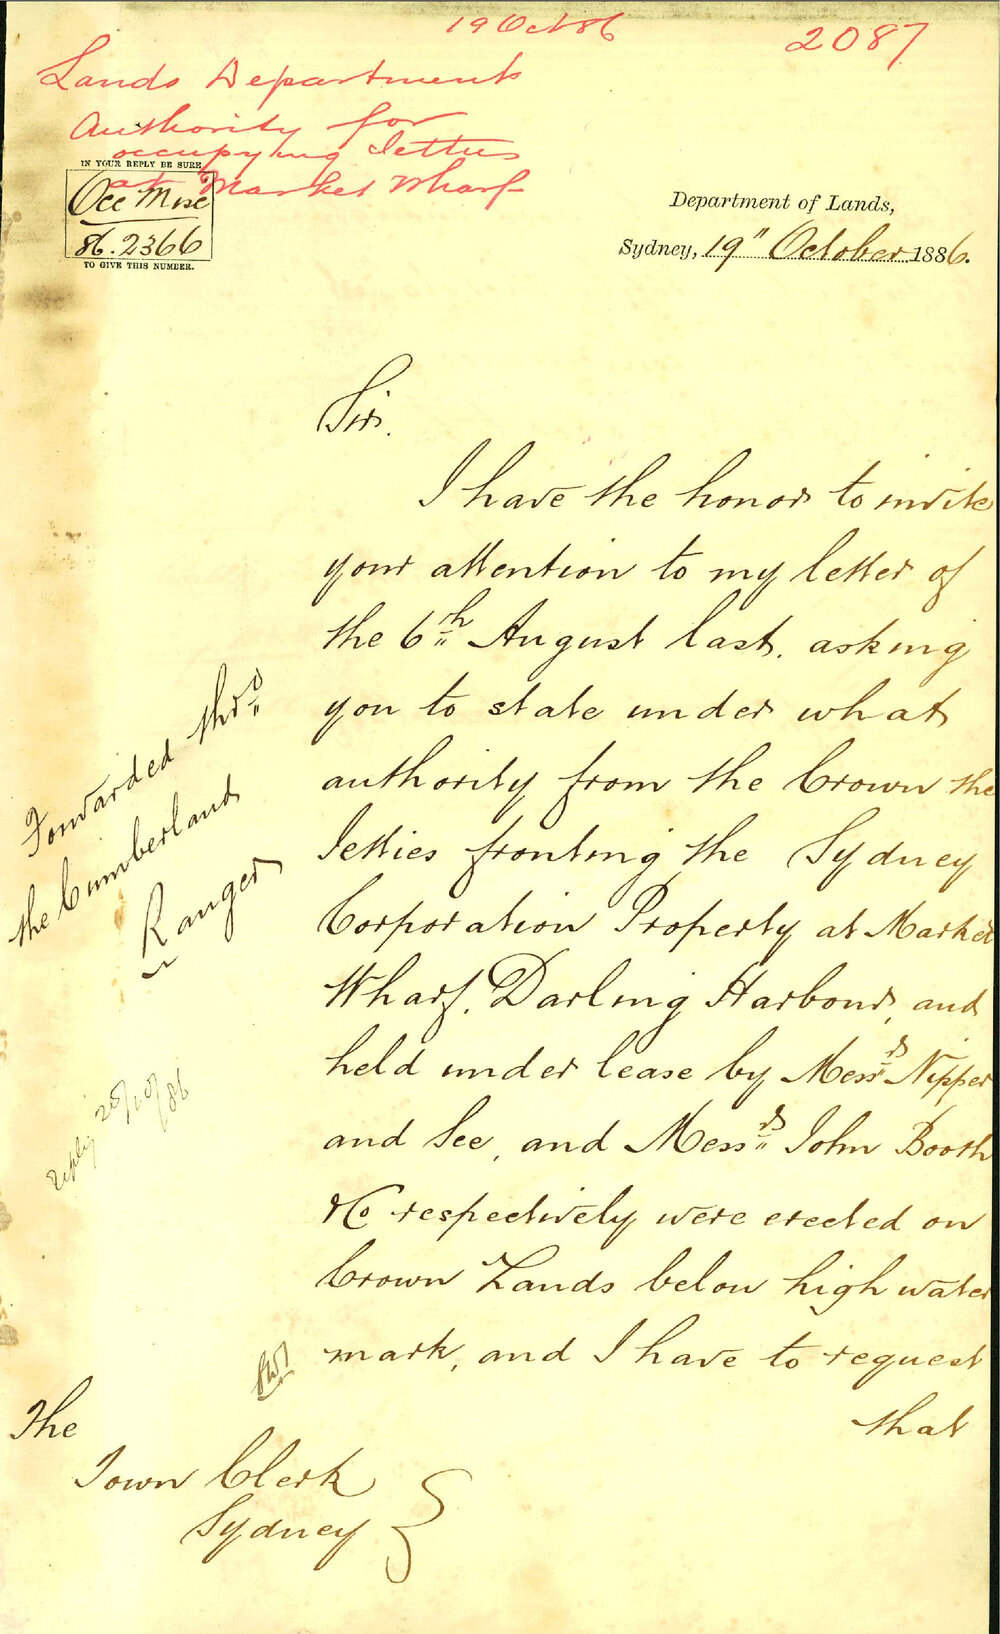 19 Oct 86
2087
Lands Department
Authority for
occupying Jetties
at Market Wharf
IN YOUR REPLY BE SURE
Occ Misc
86.2366
TO GIVE THIS NUMBER.
Department of Lands,
Sydney, 19" October 1886.
Sir.
I have the honor to invite
your attention to my letter of
the 6th August last, asking
you to state under what
authority from the Crown the
Jetties fronting the Sydney
Corporation Property at Market
Wharf, Darling Harbour, and
held under lease by Messrs Nipper
and See, and Messrs John Booth
&Co respectively were erected on
Crown Lands below high water
mark, and I have to request
that
Forwarded thro
the Cumberland
Ranger
reply 25/10/86
The
Town Clerk
Sydney